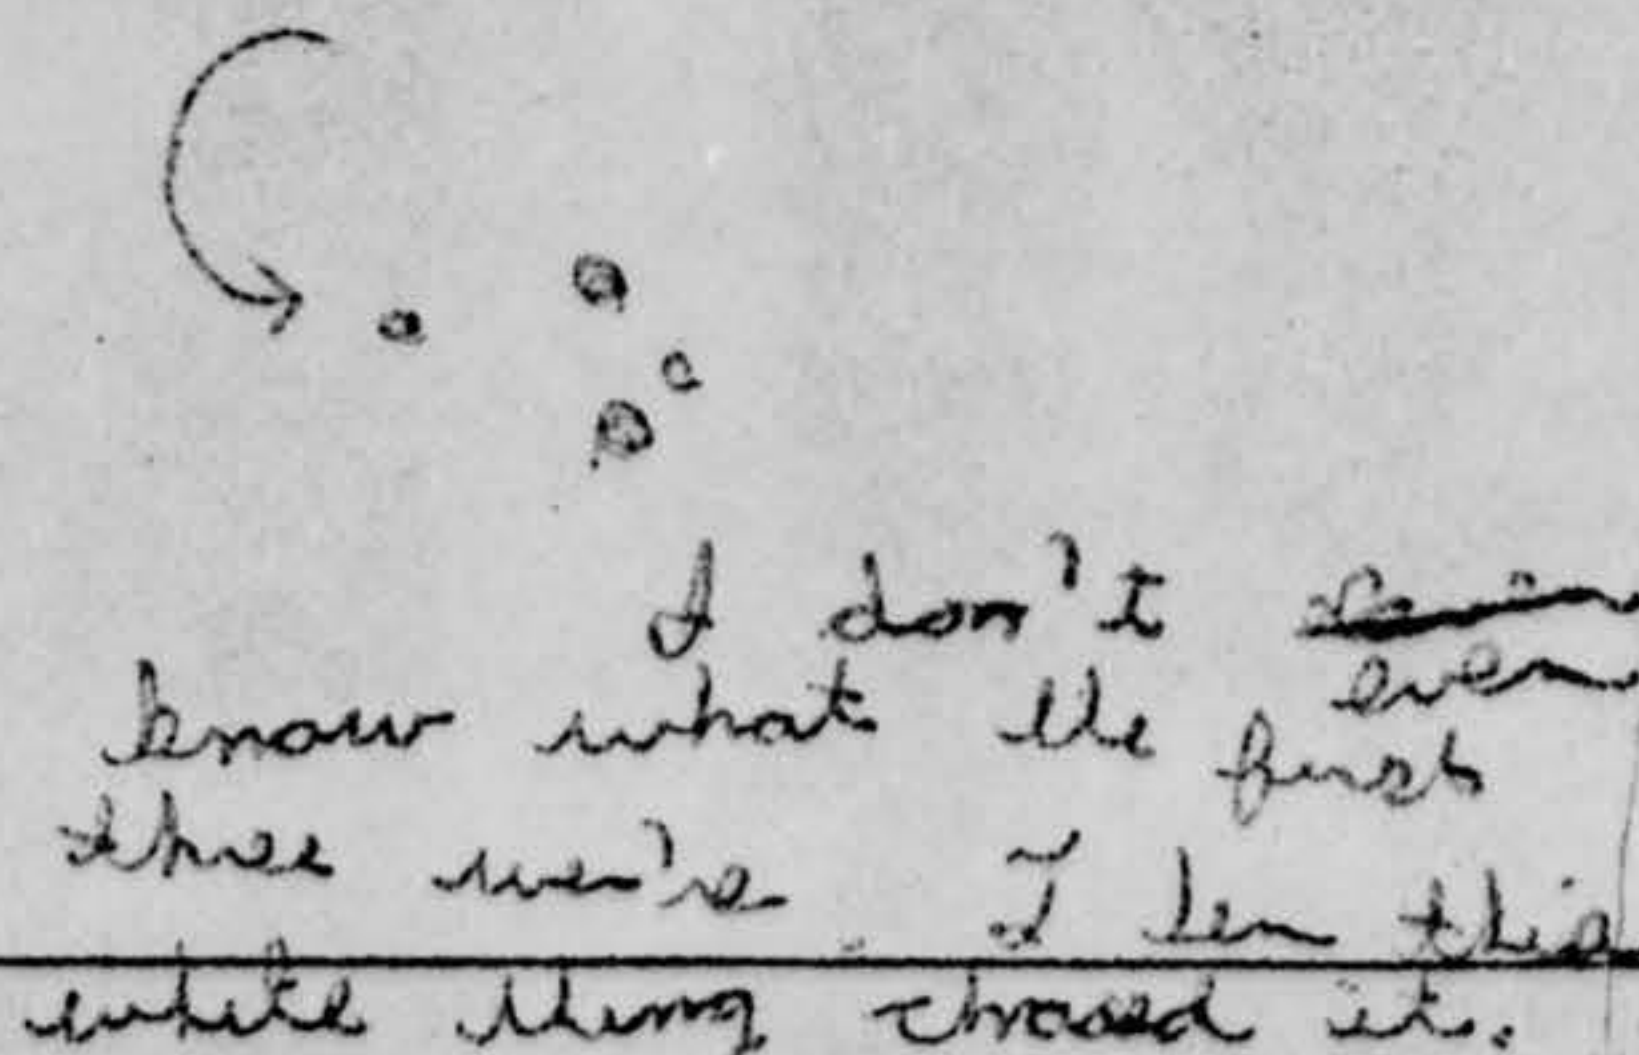 I don't
even
know what the first
three we're. I this
white thing chased it.